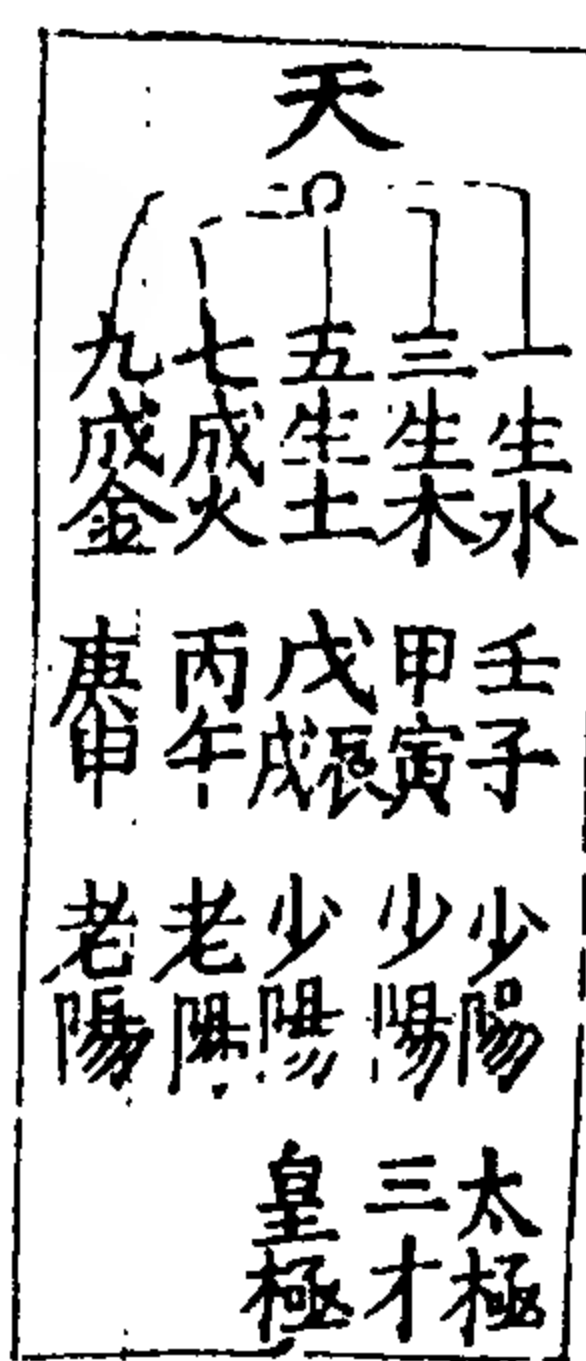 天
一生水 壬子 少陽 太極
三生木 甲寅 少陽 三才
五生土 戊辰戌 少陽 皇極
七成火 丙午 老陽
九成金 庚申 老陽